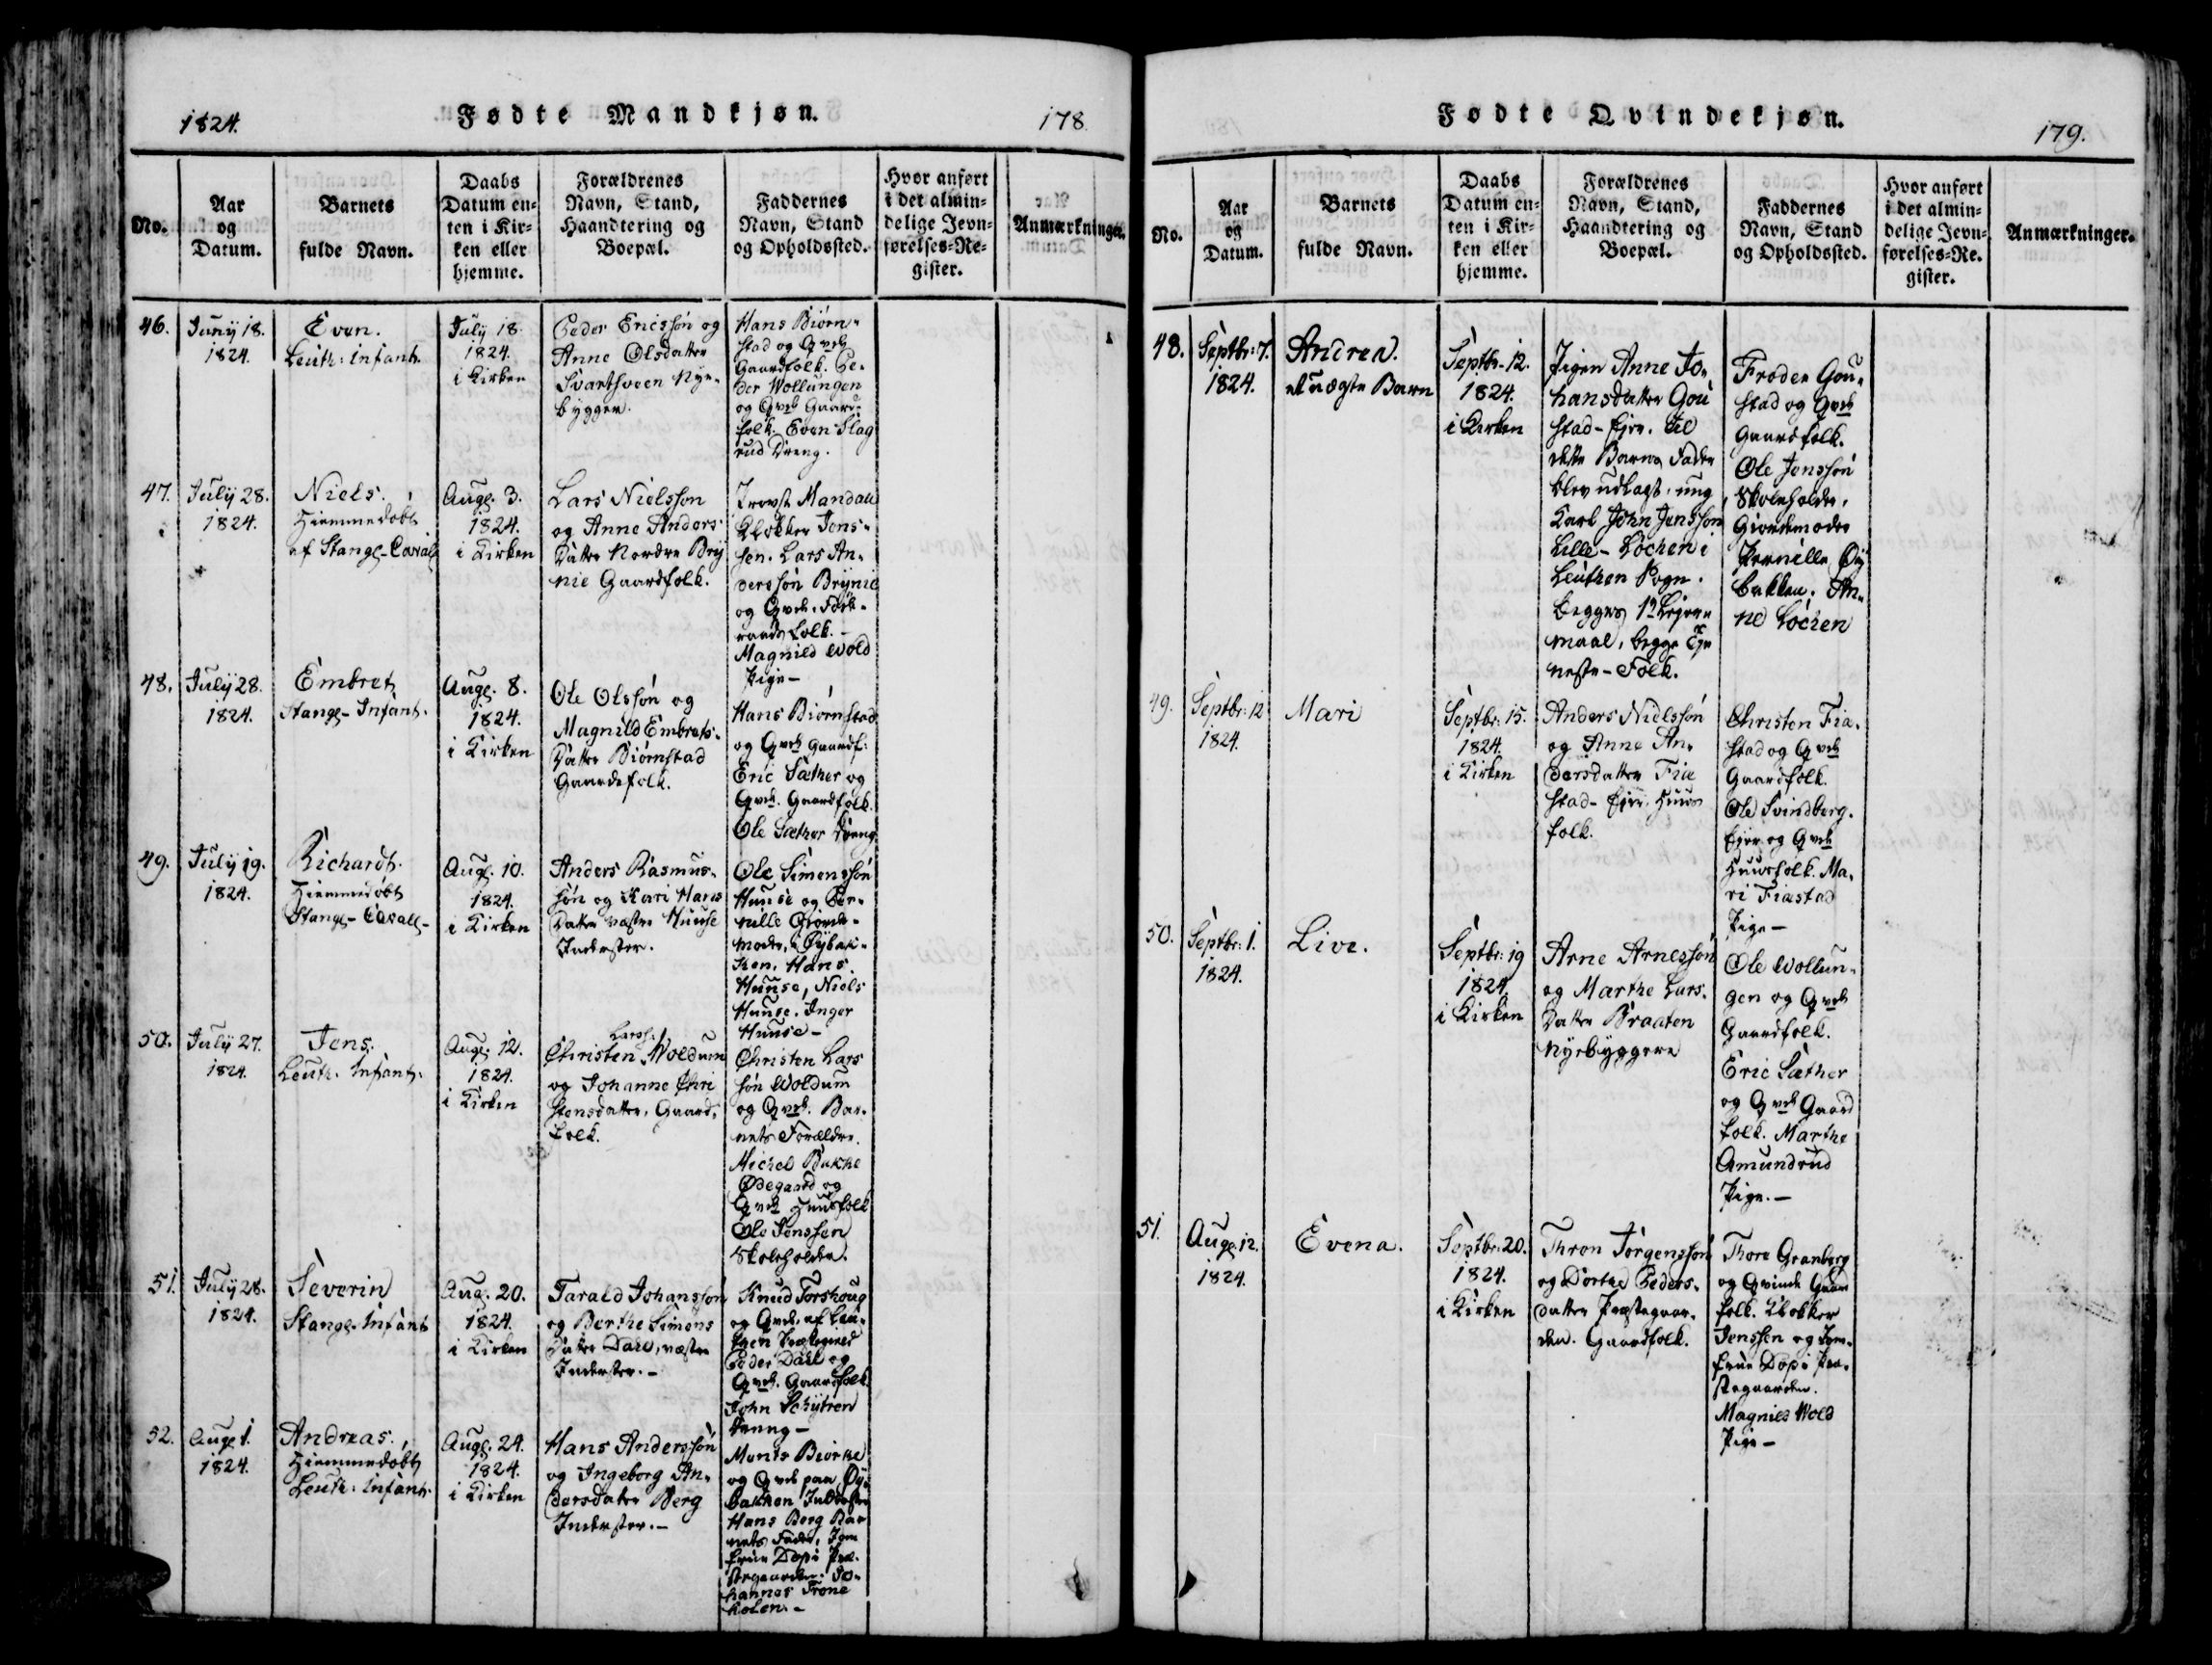 1824.
Fødte Mandkjøn.
178
No.
Aar
og
Datum.
Barnets
fulde Navn.
Daabs
Datum en-
ten i Kir-
ken eller
hjemme.
Forældrenes
Navn, Stand,
Haandtering og
Boepæl.
Faddernes
Navn, Stand
og Opholdssted.
Hvor anført
i det almin-
delige Jevn-
førelses-Re-
gister.
Anmærkninger.
46.
Juny 18.
1824.
Even.
Leuth: Infant.
July 18.
1824.
i Kirken
Peder Ericssøn og
Anne Olsdatter
Svartsveen Nye-
bygger.
Hans Biørn-
stad og Qvde
Gaardfolk. Pe-
der Wollungen
og Qvde Gaard-
folk. Even Slag
rud Dreng.
47.
July 28.
1824.
Niels.
Hiemmedøbt
af Stange-
Augs. 3.
1824.
i Kirken
Lars Nielsson
og Anne Anders
Datter Nordre Bry
nie Gaardfolk.
Provst Mandall
Klokker Jens-
sen. Lars An-
derssøn Brynie
og Qvde. Føde-
raads folk. -
Magnild Wold
Pige -
48.
July 28.
1824.
Embret
Stange-Infant.
Augs. 8.
1824.
i Kirken
Ole Olssøn og
Magnild Embrets-
Datter Biørnstad
Gaardefolk.
Hans Biørnstad
og Qvde Gaardf:
Eric Sæther og
Qvde. Gaardfolk.
Ole Sæther Dreng
49.
July 19.
1824.
Richardt.
Hiemmedøbt
Stange-
Augs. 10.
1824.
i Kirken
Anders Rasmus-
søn og Kari Hans
Datter væstre Huuse
Inderster.
Ole Simenssøn
Huuse og Per-
nille Giorde-
moder, Øybak-
ken. Hans
Huuse, Niels
Huuse. Inger
Huuse -
50.
July 27.
1824.
Jens.
Leuth. Infant.
Augs. 12.
1824.
i Kirken
Larss:
Christen Woldum
og Johanne Chri
stensdatter, Gaard-
folk.
Christen Lars
søn Woldum
og Qvde. Bar-
nets Forældre.
Michel Bakke
Ødegaard og
Qvde Huusfolk
Ole Jenssen
Skoleholder.
51.
July 28.
1824.
Severin
Stange-Infant
Aug. 20.
1824.
i Kirken
Tarald Johanssøn
og Berthe Simens
Datter Dahl, væstre
Inderster. -
Knud Torshoug
og Qvde. af Leu-
then Præstegield
Peder Dahl og
Qvde. Gaardfolk
John Schytren
Dreng -
52.
Augs 1.
1824.
Andreas.
Hiemmedøbt
Leuth: Infant.
Augs. 24.
1824.
i Kirken
Hans Anderssøn
og Ingeborg An-
dersdatter Berg
Inderster. -
Monts Biørke
og Qvde paa Øy-
bakken Inderster
Hans Berg Bar
nets Fader, Jom
frue Dopi Præ-
stegaarden. Jo-
hannes Frone
kolen. -
Fødte Qvindekjøn.
179.
No.
Aar
og
Datum.
Barnets
fulde Navn.
Daabs
Datum en-
ten i Kir-
ken eller
hjemme.
Forældrenes
Navn, Stand,
Haandtering og
Boepæl.
Faddernes
Navn, Stand
og Opholdssted.
Hvor anført
i det almin-
delige Jevn-
førelses-Re-
gister.
Anmærkninger.
48.
Septbr: 7.
1824.
Andrea.
et uægte Barn
Septbr. 12.
1824.
i Kirken
Pigen Anne Jo-
hansdatter Gou
stad-Ejer. til
dette Barns Fader
blev udlagt, ung
Karl John Jenssøn
Lille-Løchen i
Leuthen Sogn.
Begges 1te Leyer-
maal, begge Tje
neste-Folk.
Froder Gou-
stad og Qvde
Gaardfolk.
Ole Jenssøn
Skoleholder,
Giordemoder
Pernille Øy
bakken. An-
ne Løchen
49.
Septbr: 12
1824.
Mari
Septbr: 15.
1824.
i Kirken
Anders Nielssøn
og Anne An-
dersdatter Fiæ
stad-Ejer. Huus
folk.
Christen Fiæ-
stad og Qvde
Gaardfolk.
Ole Svindberg-
Ejer og Qvde
Huusfolk. Ma-
ri Fiæstad
Pige -
50.
Septbr: 1.
1824.
Live.
Septbr: 19
1824.
i Kirken
Arne Arnessøn
og Marthe Lars-
Datter Braaten
Nyebyggere
Ole Wollun-
gen og Qvde
Gaardfolk.
Eric Sæther
og Qvde Gaard
folk. Marthe
Amundrud
Pige. -
51.
Augs. 12.
1824.
Evena.
Septbr: 20.
1824.
i Kirken
Thron Jørgenssøn
og Dorthe Peders-
datter Præstegaar-
den. Gaardfolk.
Thore Granberg
og Qvinde Gaard
folk. Klokker
Jenssen og Jom-
frue Dopi Præ-
stegaarden.
Magnild Wold
Pige -